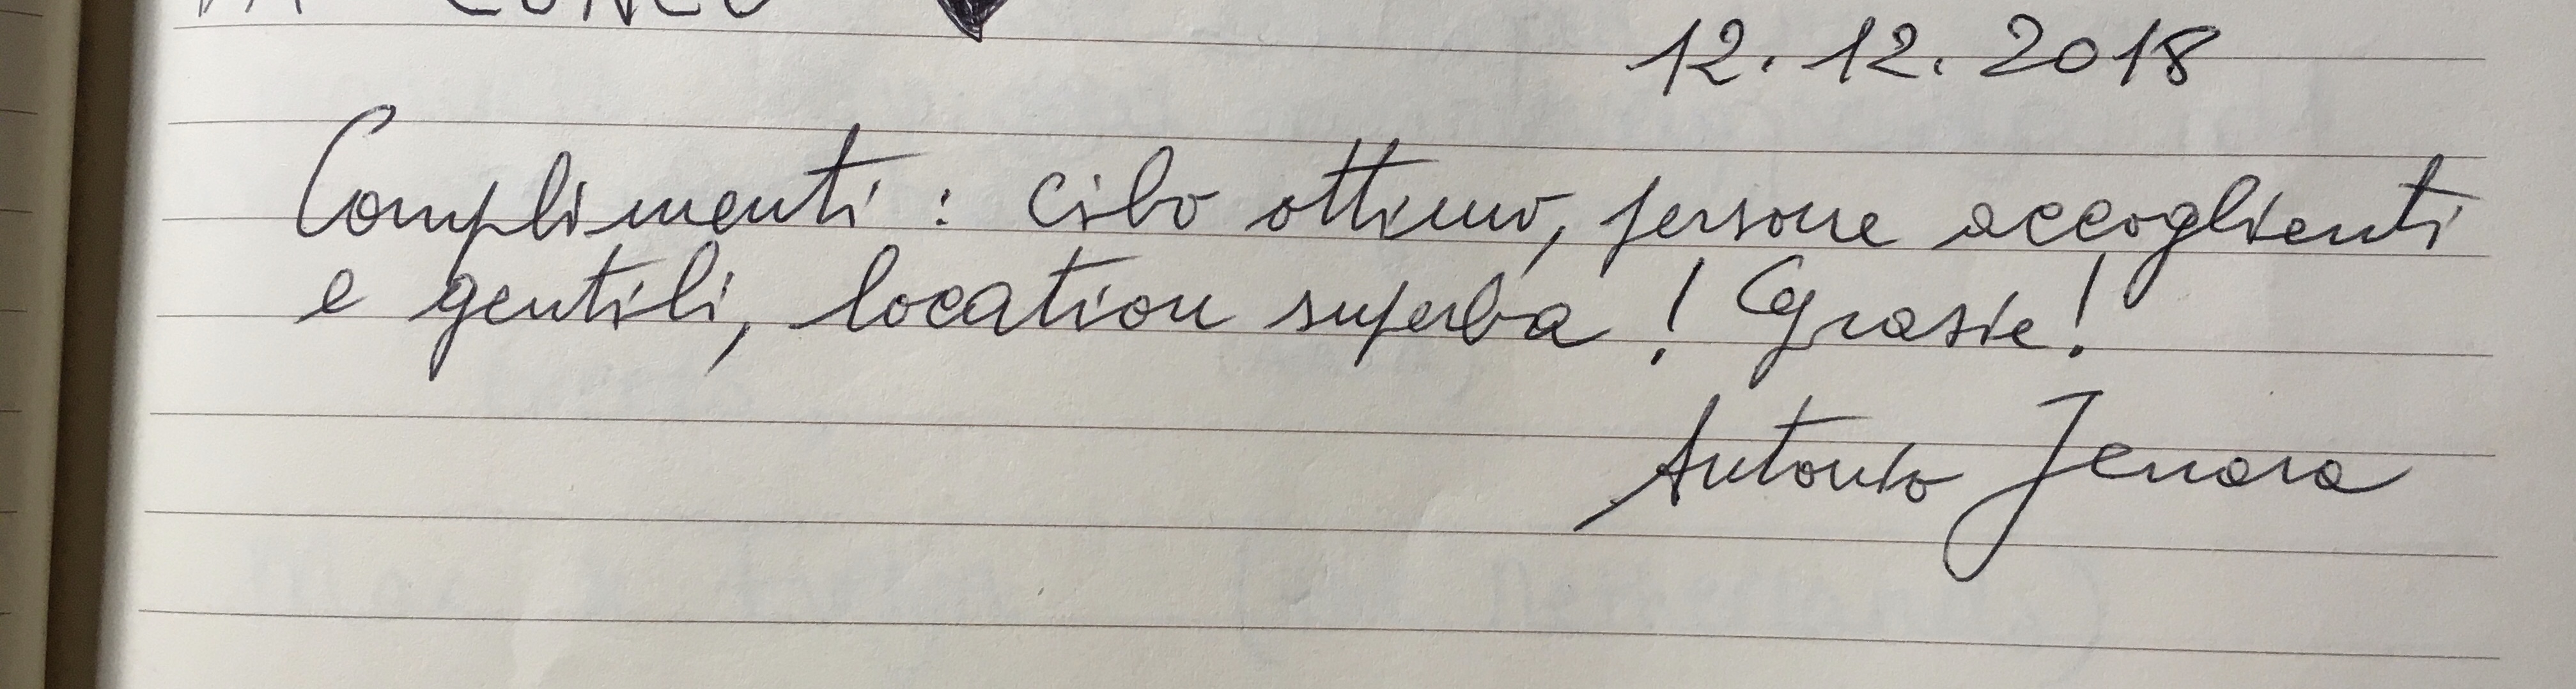 12.12.2018
Complimenti: cibo ottimo, persone accoglienti
e gentili, location superba! Grazie!
Antonio Jenara